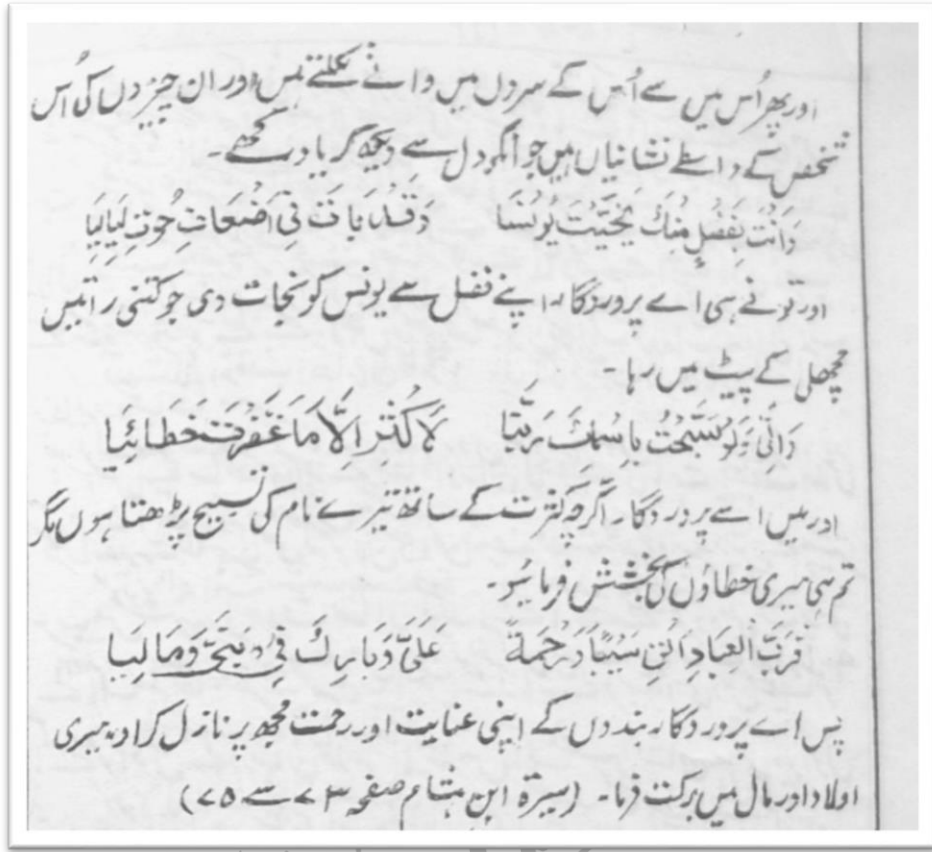 اور پھر اُس میں سے اُس کے سروں میں دانے نکلتے ہیں اور ان چیزوں کی اُس
شخص کے واسطے نشانیاں ہیں جو انکو دل سے دیکھ کر یاد رکھے۔
وَاَنْتَ بِفَضْلٍ مِنْكَ نَجَّيْتَ يُونُسًا وَقَدْ بَاتَ فِي اَضْعَافِ حُوْتٍ لَيَالِيَا
اور تو نے ہی اے پروردگار اپنے فضل سے یونس کو نجات دی جو کتنی راتیں
مچھلی کے پیٹ میں رہا۔
وَاِنِّي وَلَوْ سَبَّحْتُ بِاسْمِكَ رَبَّنَا لَاَكْثَرُ اِلَّا مَا غَفَرْتَ خَطَائِيَا
اور میں اے پروردگار اگرچہ کثرت کے ساتھ تیرے نام کی تسبیح پڑھتا ہوں مگر
تم ہی میری خطاؤں کی بخشش فرمائیو۔
فَرَبَّ الْعِبَادِ اَلْقِ سَيْبًا وَرَحْمَةً عَلَيَّ وَبَارِكْ فِي بَنِيَّ وَمَالِيَا
پس اے پروردگار بندوں کے اپنی عنایت اور رحمت مجھ پر نازل کر اور میری
اولاد اور مال میں برکت فرما۔ (سیرۃ ابن ہشام صفحہ ۷۳ سے ۷۵)